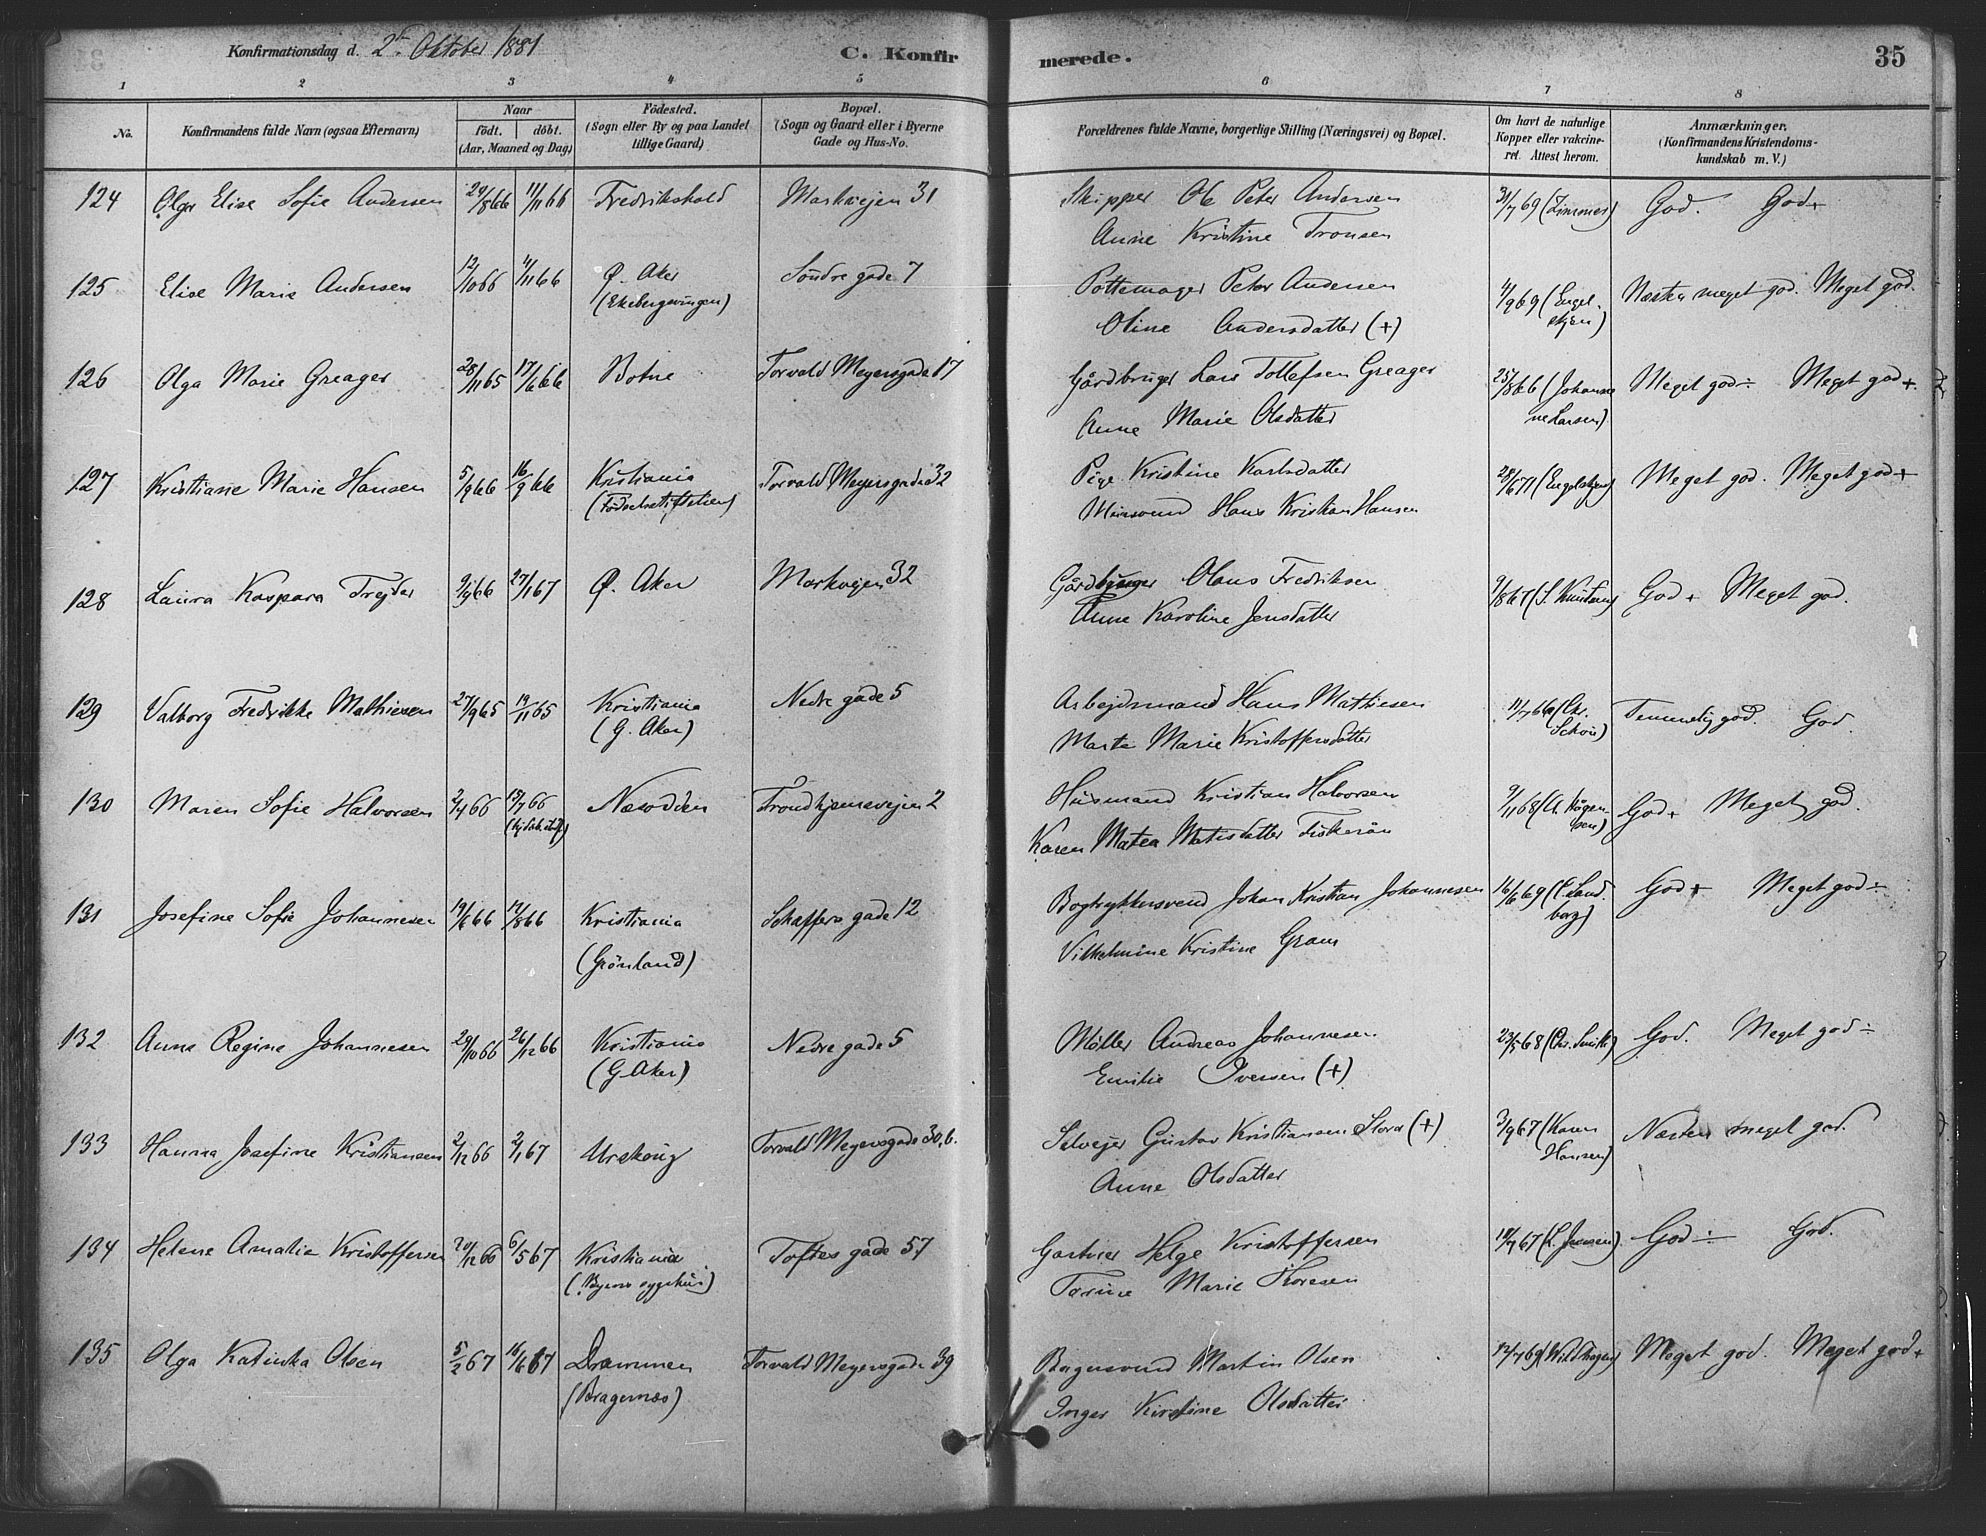 Konfirmationsdag d. 2den Oktober 1881
C. Konfirmerede.
35
1 2 3 4 5 6 7 8
No. Konfirmandens fulde Navn (ogsaa Efternavn) Naar födt. döbt. (Aar, Maaned og Dag) Födested. (Sogn eller By og paa Landet tillige Gaard) Bopæl. (Sogn og Gaard eller i Byerne Gade og Hus-No. Forældrenes fulde Navne, borgerlige Stilling (Næringsvei) og Bopæl. Om havt de naturlige Kopper eller vakcineret. Attest herom. Anmærkninger. (Konfirmandens Kristendomskundskab m. V.)
124 Olga Elise Sofie Andersen 29/8 66 11/11 66 Fredrikshald Markvejen 31 Skipper Ole Peter Andersen 31/7 69 (Zimmer) God. God+
Anne Kristine Tronsen
125 Elise Marie Andersen 12/10 66 4/11 66 Ø. Aker Söndre gade 7 Pottemager Peter Andersen 4/9 69 (Engelskjøn) Næsten meget god. Meget god.
(Ekebergsvingen) Oline Andersdatter (+)
126 Olga Marie Greager 28/11 65 17/6 66 Botne Torvald Meyersgade 17 Gårdbruger Lars Tollefsen Greager 25/8 66 (Johanne Larsen) Meget god÷ Meget god+
Anne Marie Olsdatter
127 Kristiane Marie Hansen 5/9 66 16/9 66 Kristiania Torvald Meyersgade 32 Pige Kristine Karlsdatter 28/6 71 (Engelskjøn) Meget god. Meget god+
(Födselsstiftelsen) Mursvend Hans Kristian Hansen
128 Laura Kaspara Frejder 9/9 66 27/1 67 Ø. Aker Markvejen 32 Gårdbruger Olaus Fredriksen 9/8 67 (S. Knutsen) God+ Meget god.
Anne Karoline Jensdatter
129 Valborg Fredrikke Mathiesen 27/9 65 19/11 65 Kristiania Nedre gade 5 Arbejdsmand Hans Mathiesen 11/7 66 (Chr. Schou) Temmelig god. God
(G. Aker) Marte Marie Kristoffersdatter
130 Maren Sofie Halvorsen 2/4 66 15/7 66 Næsodden Trondhjemsvejen 2 Husmand Kristian Halvorsen 9/11 68 (A. Hågensen) God+ Meget god.
Karen Matea Matisdatter Fiskerön
131 Josefine Sofie Johannesen 19/6 66 12/8 66 Kristiania Schaffers gade 12 Bogtrykkersvend Johan Kristian Johannesen 16/6 69 (C. Sandberg) God+ Meget god÷
(Grönland) Vilhelmine Kristine Gram
132 Anna Regine Johannesen 29/10 66 26/12 66 Kristiania Nedre gade 5 Møller Andreas Johannesen 23/5 68 (Chr. Smith) God. Meget god÷
(G. Aker) Emilie Iversen (+)
133 Hanna Josefine Kristiansen 2/12 66 2/1 67 Urskoug Torvald Meyersgade 30, b. Selvejer Gustav Kristiansen Slora (+) 3/9 67 (Karen Hansen) Næsten meget god.
Anne Olsdatter
134 Helene Amalie Kristoffersen 29/12 66 6/5 67 Kristiania Toftes gade 57 Gartner Helge Kristoffersen 19/7 67 (L. Jensen) God÷ God.
(Byens sygehus) Torine Marie Thoresen
135 Olga Katinka Olsen 5/2 67 16/6 67 Drammen Torvald Meyersgade 39 Bagersvend Martin Olsen 12/7 69 (Wildhagen) Meget god. Meget god+
(Bragernæs) Inger Kirstine Olsdatter